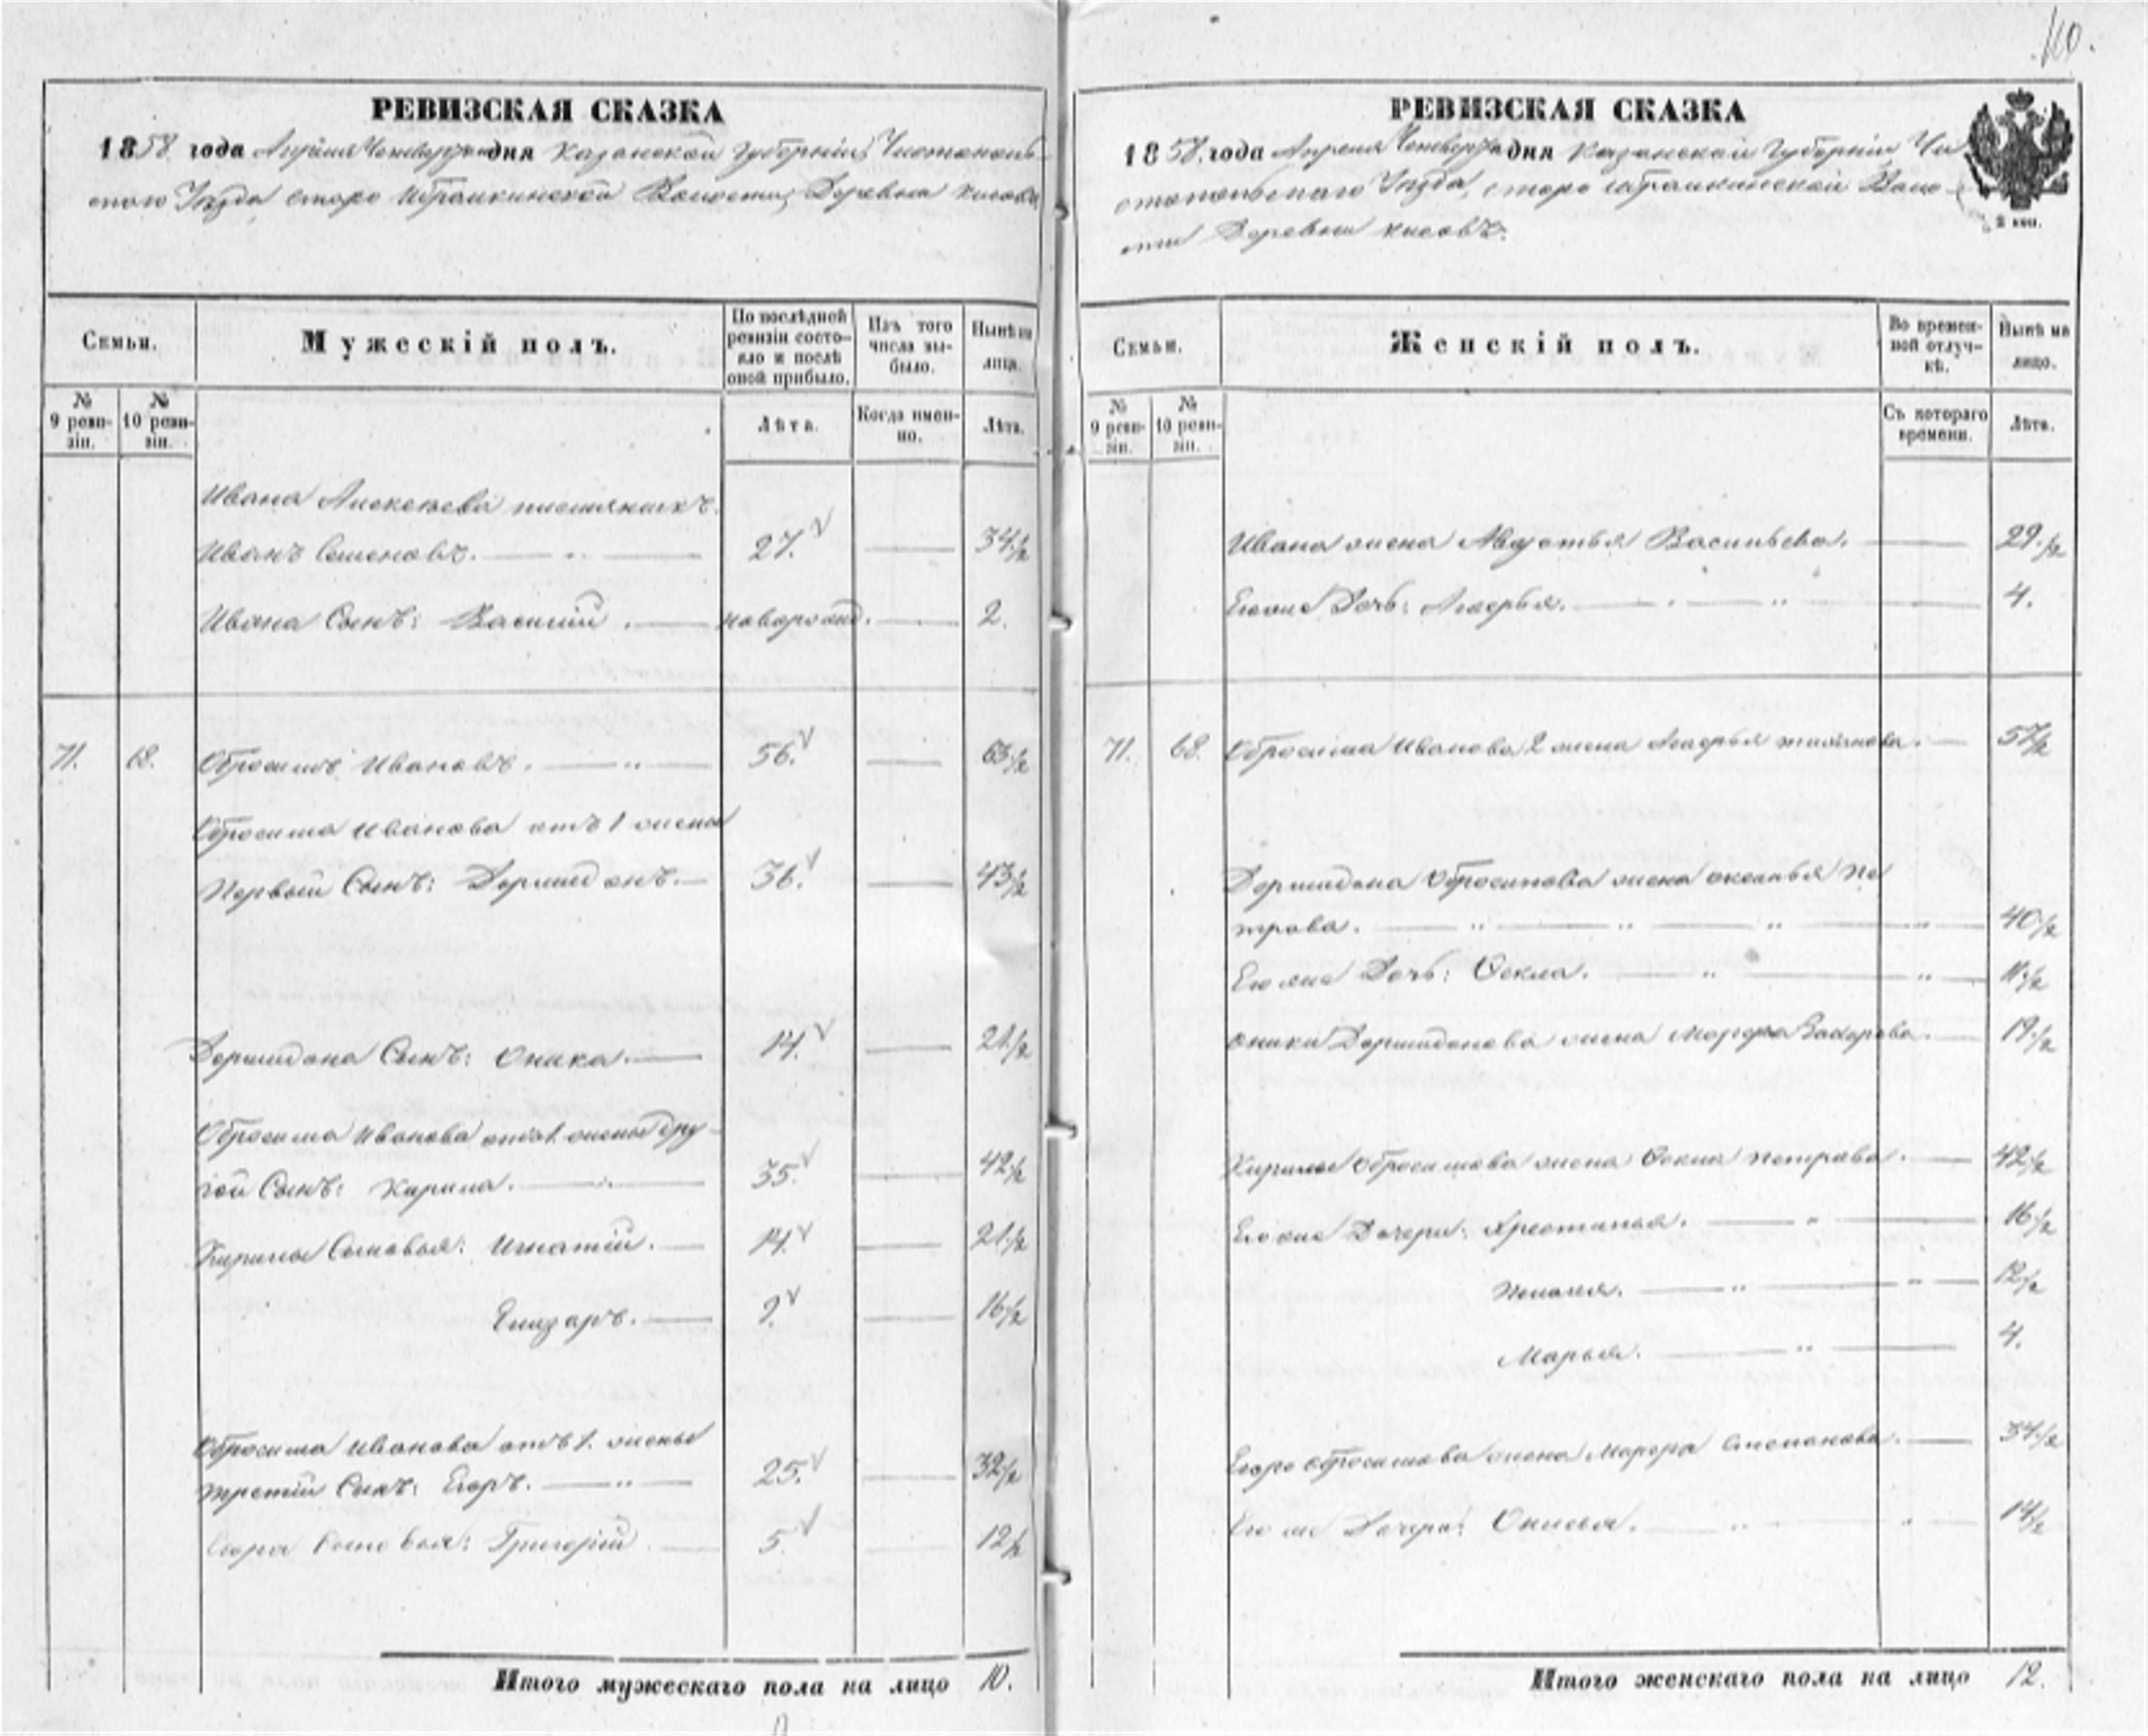 110.
РЕВИЗСКАЯ СКАЗКА
1858 года Апреля Четвертого дня Казанской Губернiи, Чистополь-
скаго Уезда, старо Ибрайкинской Волости, Деревни Кисовъ
Семьи.
Мужескiй полъ.
По послѣдней ревизiи состояло и послѣ оной прибыло.
Изъ того числа выбыло.
Нынѣ на лицо.
№ 9 ревизiи.
№ 10 ревизiи.
Лѣта.
Когда именно.
Лѣта.
Ивана Алексеева племянникъ
Иванъ Семеновъ. 27. 34½
Ивана Сынъ: Василий. новорожд. 2.
71. 68. Обросимъ Ивановъ. 56. 63½
Обросима Иванова отъ 1 жены
Первый Сынъ: Дормидонъ. 36. 43½
Дормидона Сынъ: Оника. 14. 21½
Обросима Иванова отъ 1. жены дру-
гой Сынъ: Кирила. 35. 42½
Кирилы Сыновья: Игнатiй. 14. 21½
Елизаръ. 9. 16½
Обросима Иванова отъ 1. жены
третiй Сынъ: Егоръ. 25. 32½
Егора Сыновья: Григорiй 5. 12½
Итого мужескаго пола на лицо 10.
РЕВИЗСКАЯ СКАЗКА
1858. года Апреля Четвертого дня Казанской Губернiи Чи
стопольскаго Уезда, старо Ибрайкинской Воло-
сти Деревни Кисовъ.
2 коп.
Семьи.
Женскiй полъ.
Во временной отлучкѣ.
Нынѣ на лицо.
№ 9 ревизiи.
№ 10 ревизiи.
Съ котораго времени.
Лѣта.
Ивана жена Авдотья Васильева. 29.½
Его же Дочь: Агафья. 4.
71. 68. Обросима Иванова 2 жена Агафья 57½
Дормидона Обросимова жена Пе
трова. 40½
Его же Дочь: Фекла. 11½
Оники Дормидонова жена Марфа Захарова. 19½
Кирилы Обросимова жена Фекла Петрова. 42½
Его же Дочери: Хрестинья. 16½
12½
Марья. 4.
Егора Обросимова жена Марфа Степанова. 34½
Его же Дочери: Онисья. 14½
Итого женскаго пола на лицо 12.